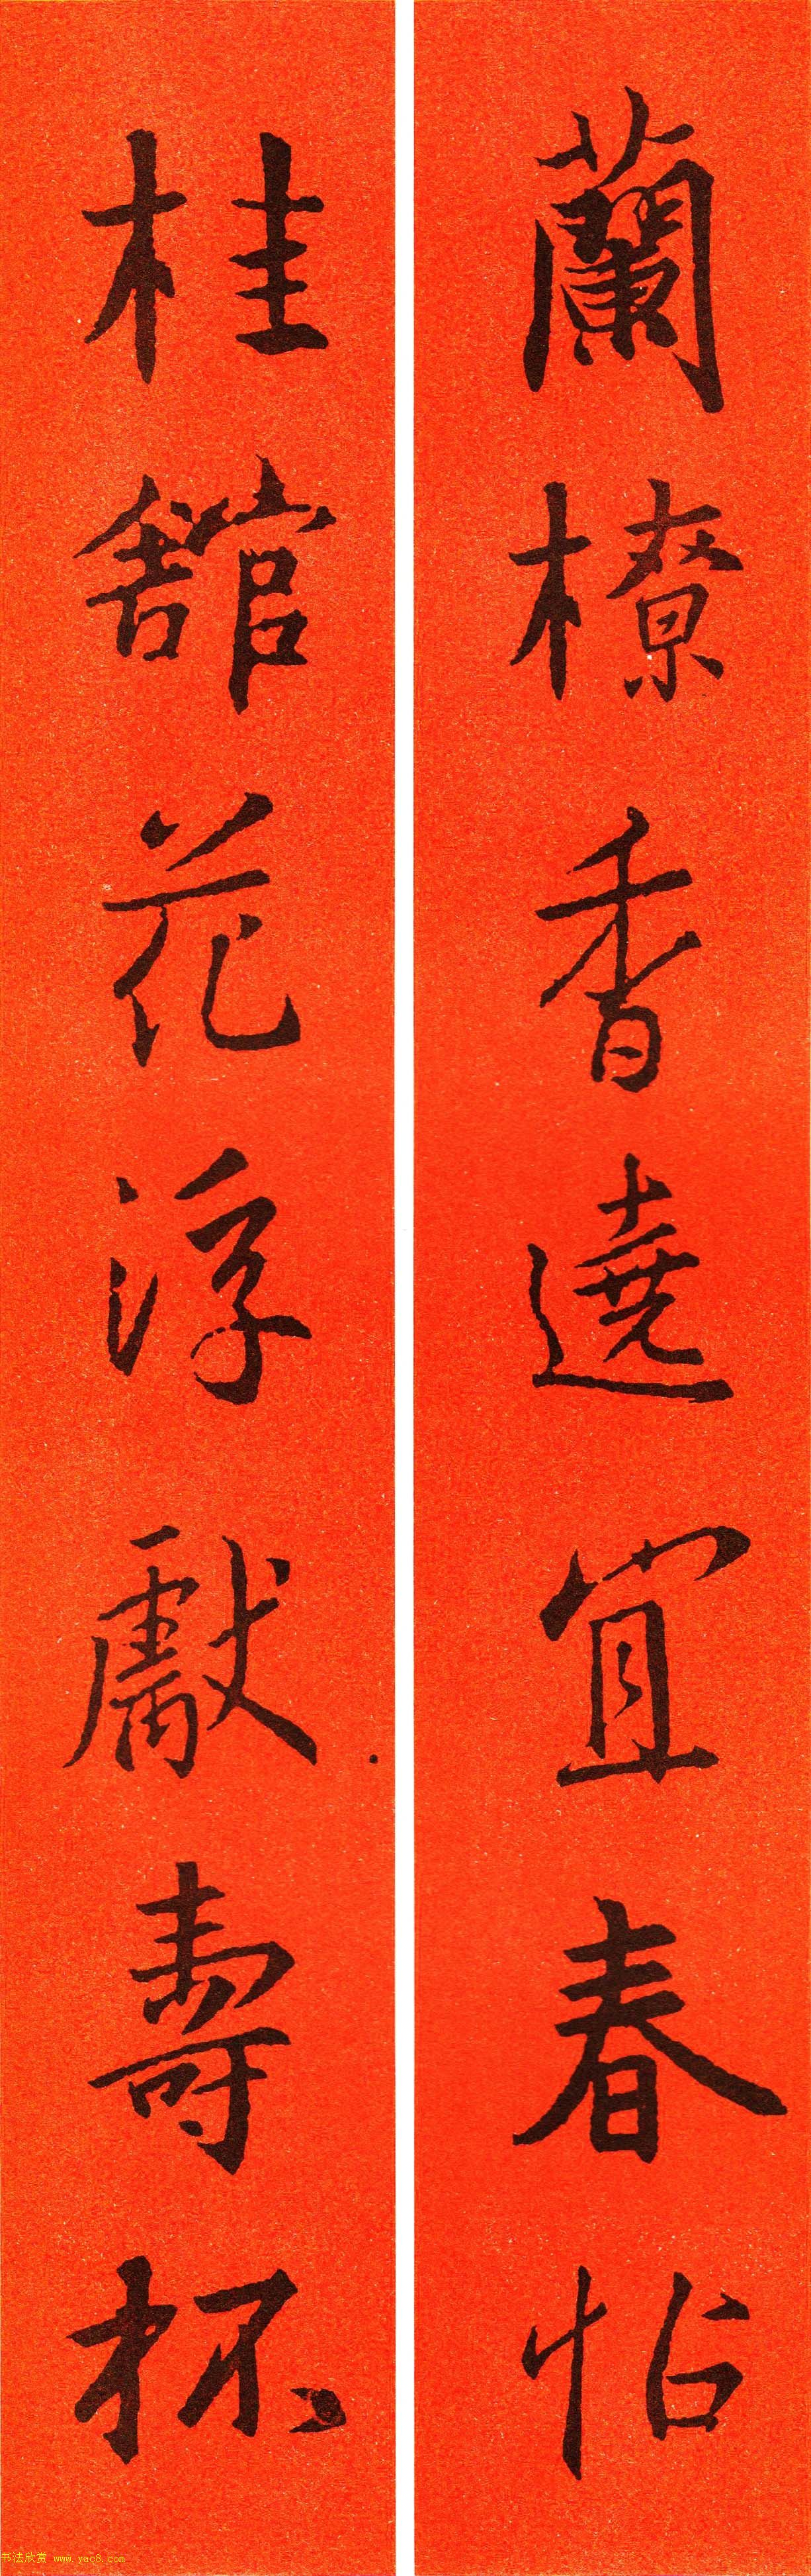 蘭橑香遶宜春帖
桂館花浮獻壽杯
书法欣赏 www.yac8.com